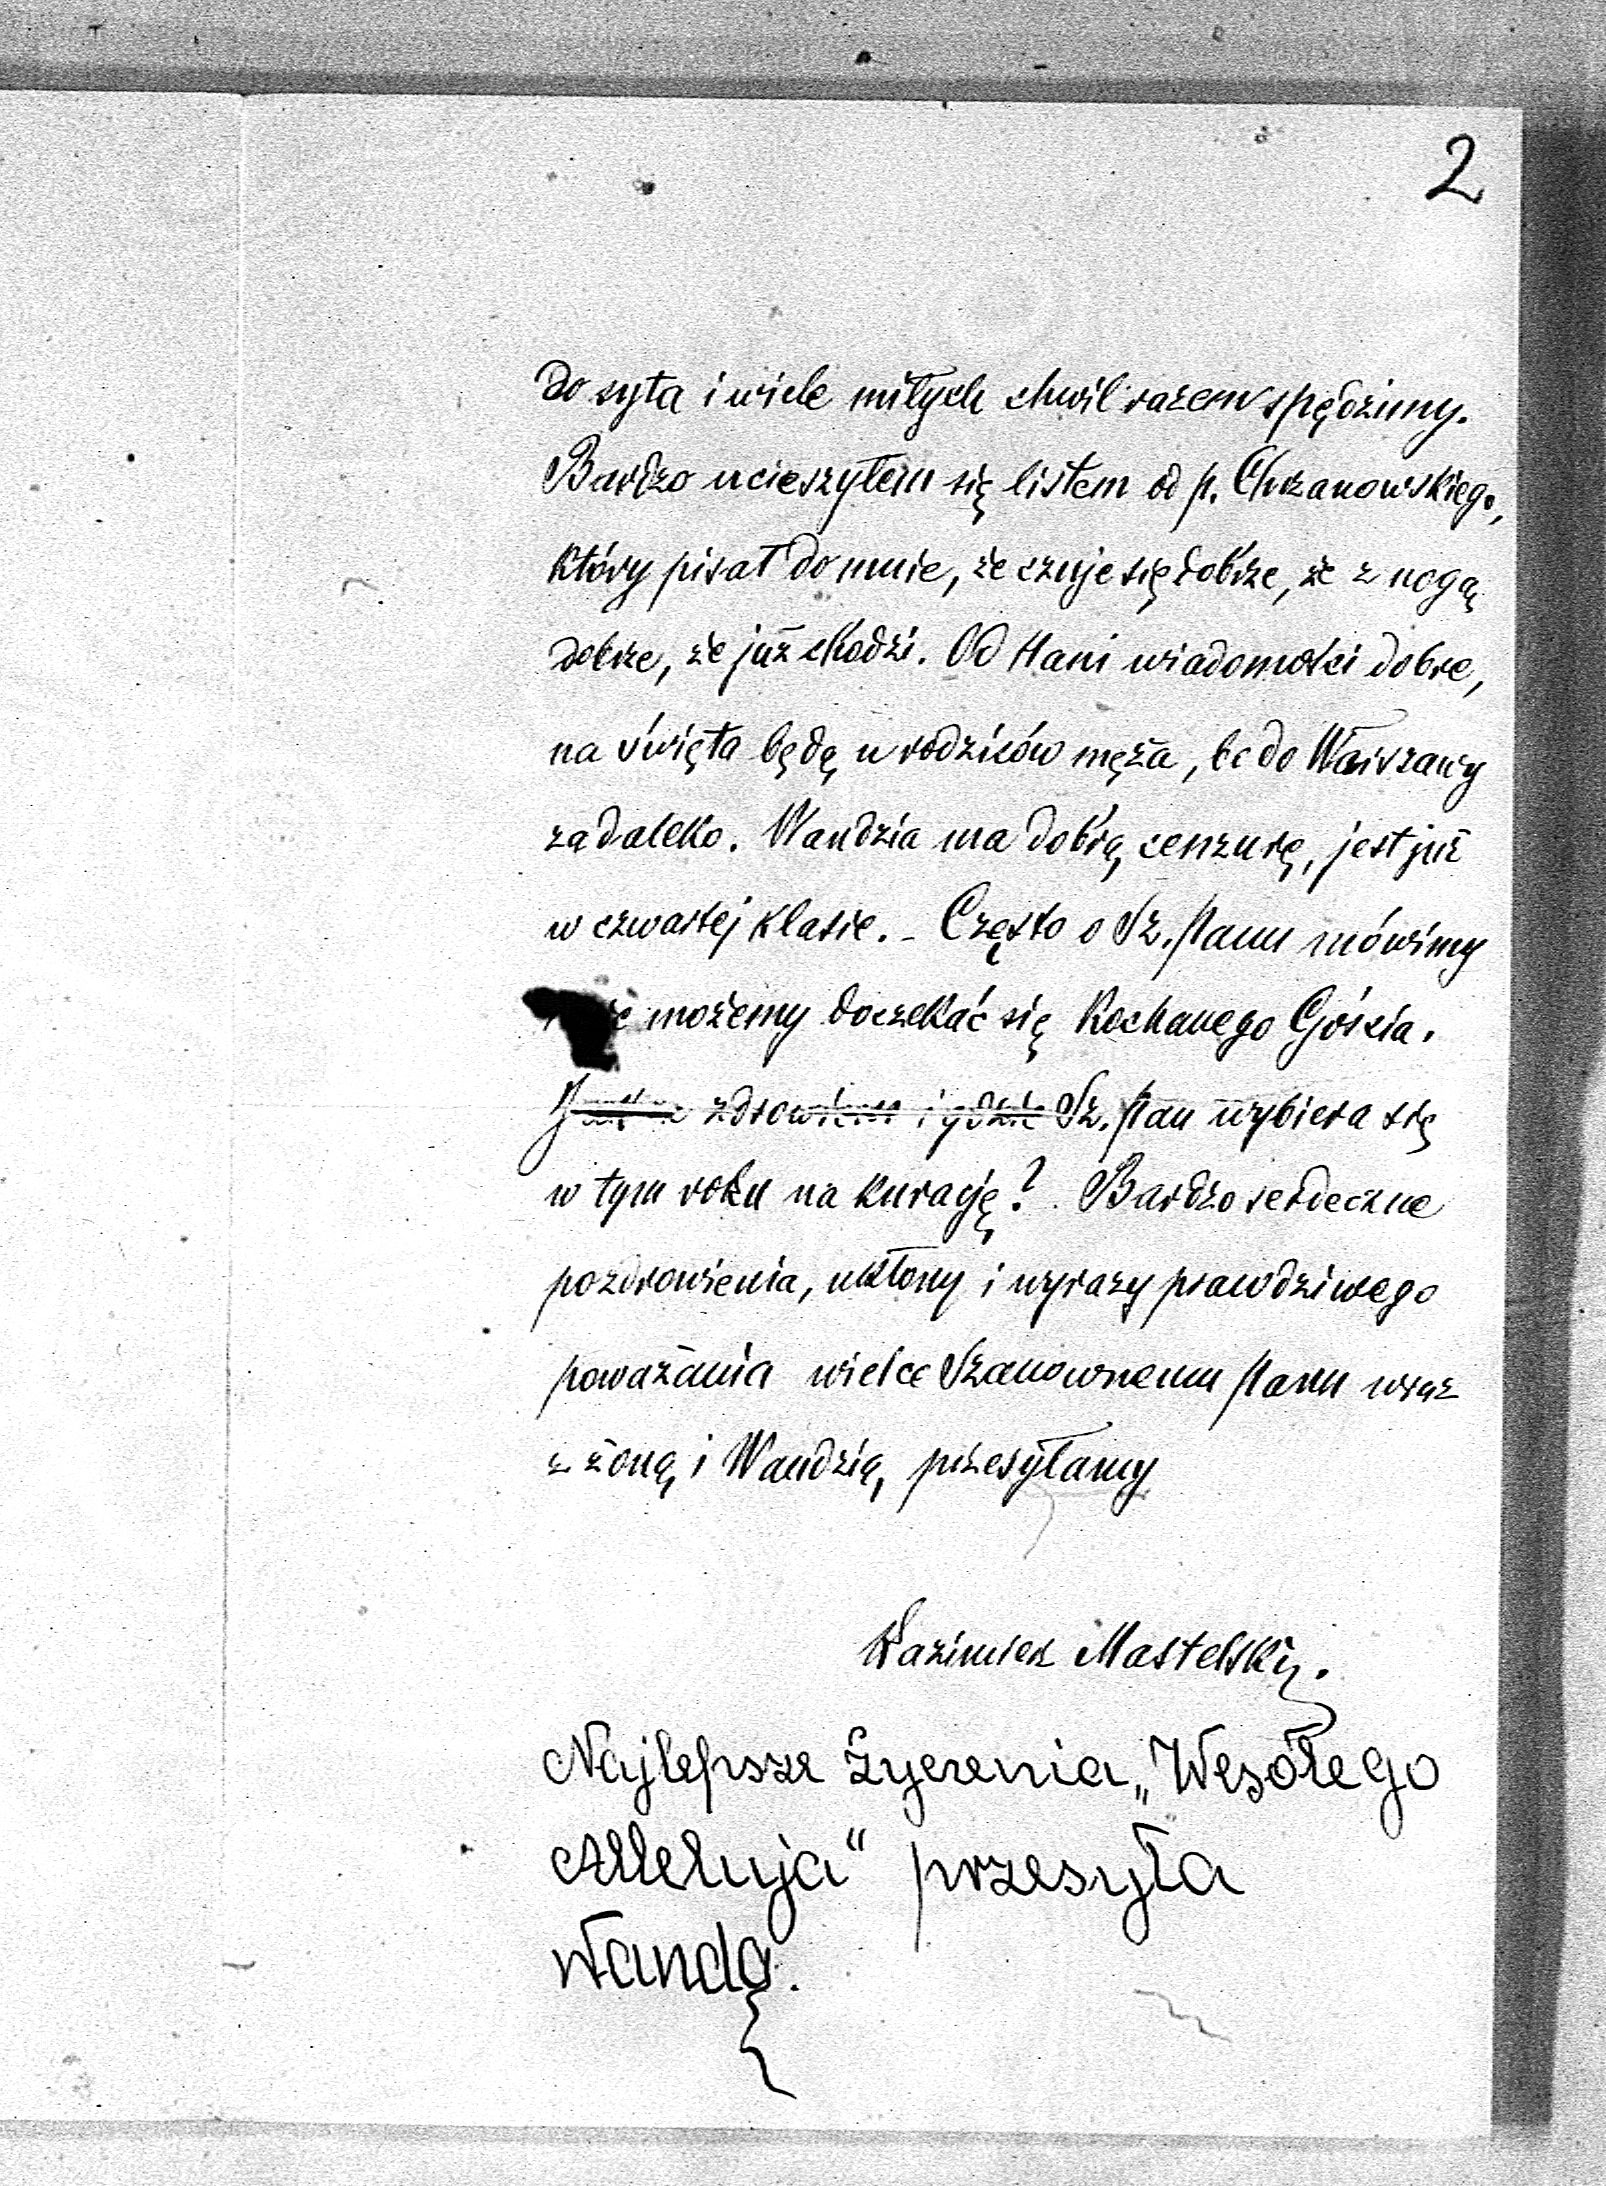 2
do syta i wiele miłych chwil razem spędzimy.
Bardzo ucieszyłem się listem od p. Chrzanowskiego,
który pisał do mnie, że czuje się dobrze, że z nogą
dobrze, że już chodzi. Od Hani wiadomości dobre,
na święta będą u rodziców męża, bo do Warszawy
za daleko. Wandzia ma dobrą cenzurę, jest już
w czwartej klasie. - Często o Sz. Panu mówimy
możemy doczekać się Kochanego Gościa.
zdrowiem i gdzie Sz. Pan wybiera się
w tym roku na kurację? Bardzo serdeczne
pozdrowienia, ukłony i wyrazy prawdziwego
poważania wielce Szanownemu Panu wraz
z żoną i Wandzią, przesyłamy
Kazimierz Mastelski.
Najlepsze życzenia „Wesołego
Alleluja“ przesyła
Wanda.